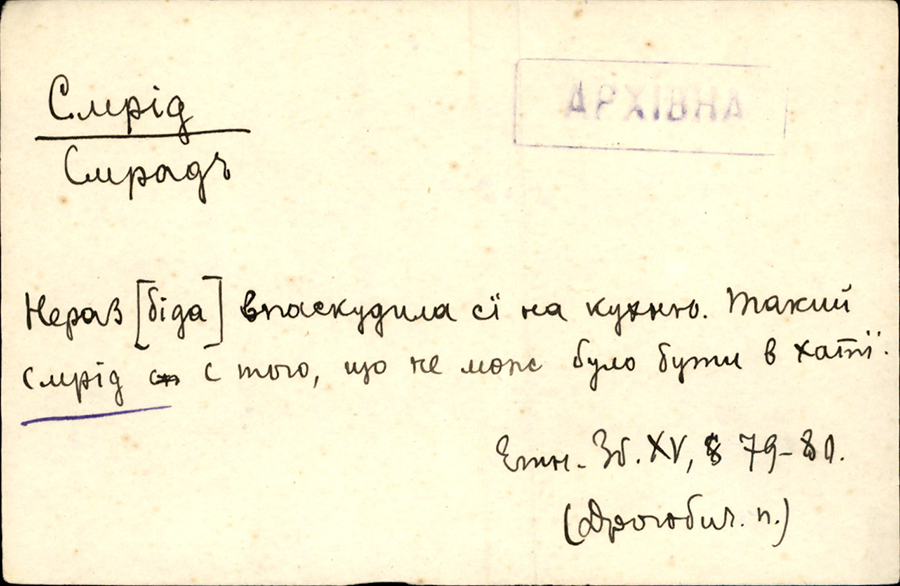 Смрід
АРХІВНА
Смрадъ
Нераз [біда] впаскудила сї на кухню. Такий
смрід с того, що не мож було бути в хатї.
Етн. Зб. XV, 79–80.
(Дрогобич. п.)